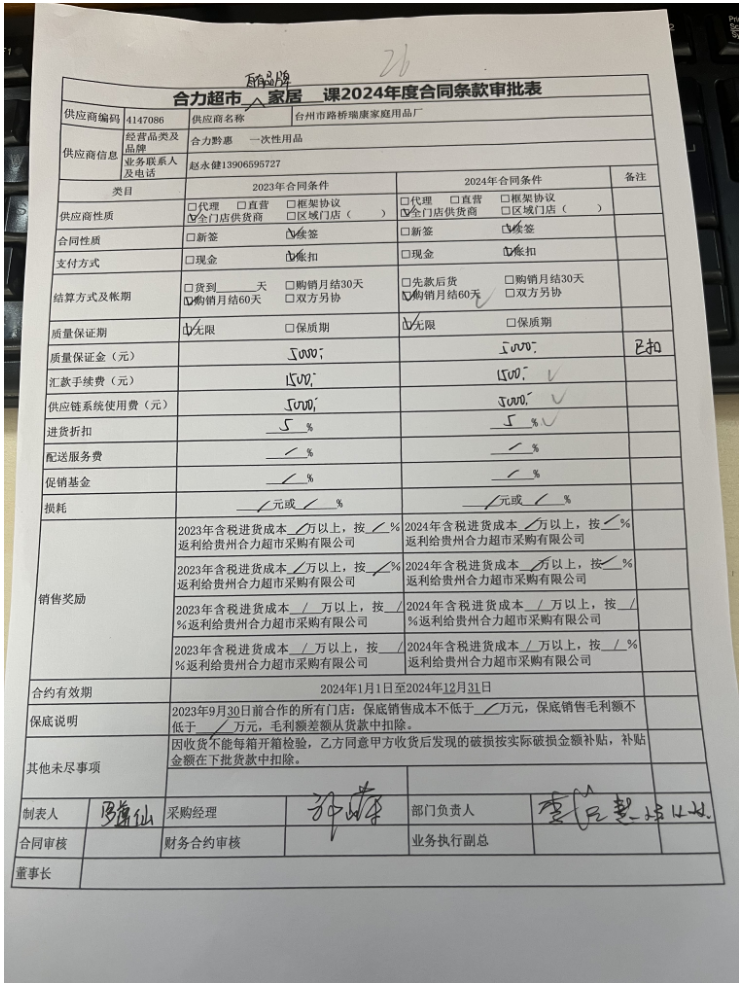 26
自有品牌
合力超市 家居 课2024年度合同条款审批表
供应商编码 4147086 供应商名称 台州市路桥瑞康家庭用品厂
供应商信息 经营品类及品牌 合力黔惠 一次性用品
业务联系人及电话 赵永健13906595727
类目 2023年合同条件 2024年合同条件 备注
供应商性质 □代理 □直营 □框架协议 □代理 □直营 □框架协议
☑全门店供货商 □区域门店（ ） ☑全门店供货商 □区域门店（ ）
合同性质 □新签 ☑续签 □新签 ☑续签
支付方式 □现金 ☑帐扣 □现金 ☑帐扣
结算方式及帐期 □货到____天 □购销月结30天 □先款后货 □购销月结30天
☑购销月结60天 □双方另协 ☑购销月结60天✓ □双方另协
质量保证期 ☑无限 □保质期 ☑无限 □保质期
质量保证金（元） 5000; 5000; 已扣
汇款手续费（元） 1500; 1500; ✓
供应链系统使用费（元） 5000; 5000; ✓
进货折扣 5 % 5 % ✓
配送服务费 / % / %
促销基金 / % / %
损耗 / 元或 / % / 元或 / %
销售奖励
2023年含税进货成本 / 万以上，按 / % 2024年含税进货成本 / 万以上，按 / %
返利给贵州合力超市采购有限公司 返利给贵州合力超市采购有限公司
2023年含税进货成本 / 万以上，按 / % 2024年含税进货成本 / 万以上，按 / %
返利给贵州合力超市采购有限公司 返利给贵州合力超市采购有限公司
2023年含税进货成本 / 万以上，按 / 2024年含税进货成本 / 万以上，按 /
%返利给贵州合力超市采购有限公司 %返利给贵州合力超市采购有限公司
2023年含税进货成本 / 万以上，按 / 2024年含税进货成本 / 万以上，按 / %
%返利给贵州合力超市采购有限公司 返利给贵州合力超市采购有限公司
合约有效期 2024年1月1日至2024年12月31日
保底说明 2023年9月30日前合作的所有门店：保底销售成本不低于 / 万元，保底销售毛利额不
低于 / 万元，毛利额差额从货款中扣除。
其他未尽事项 因收货不能每箱开箱检验，乙方同意甲方收货后发现的破损按实际破损金额补贴，补贴
金额在下批货款中扣除。
制表人 采购经理 部门负责人
合同审核 财务合约审核 业务执行副总
董事长